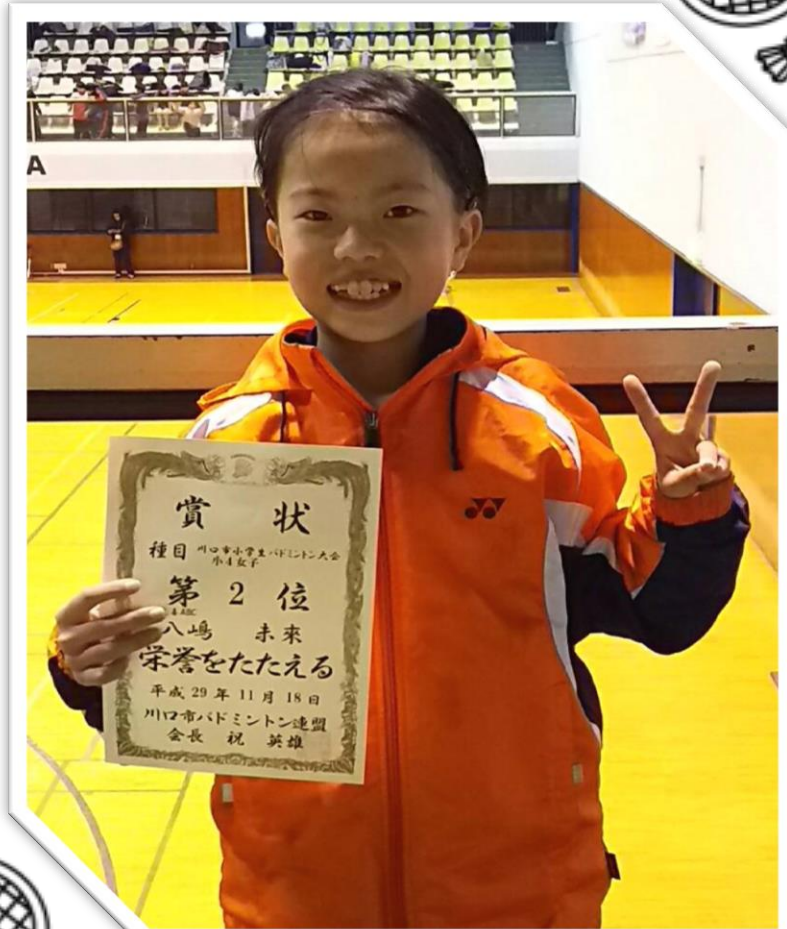 A
賞 状
種目 川口市小学生バドミントン大会
小4女子
第 2 位
4 ABC
八嶋 未来
栄誉をたたえる
平成 29 年 11 月 18 日
川口市バドミントン連盟
会長 祝 英雄